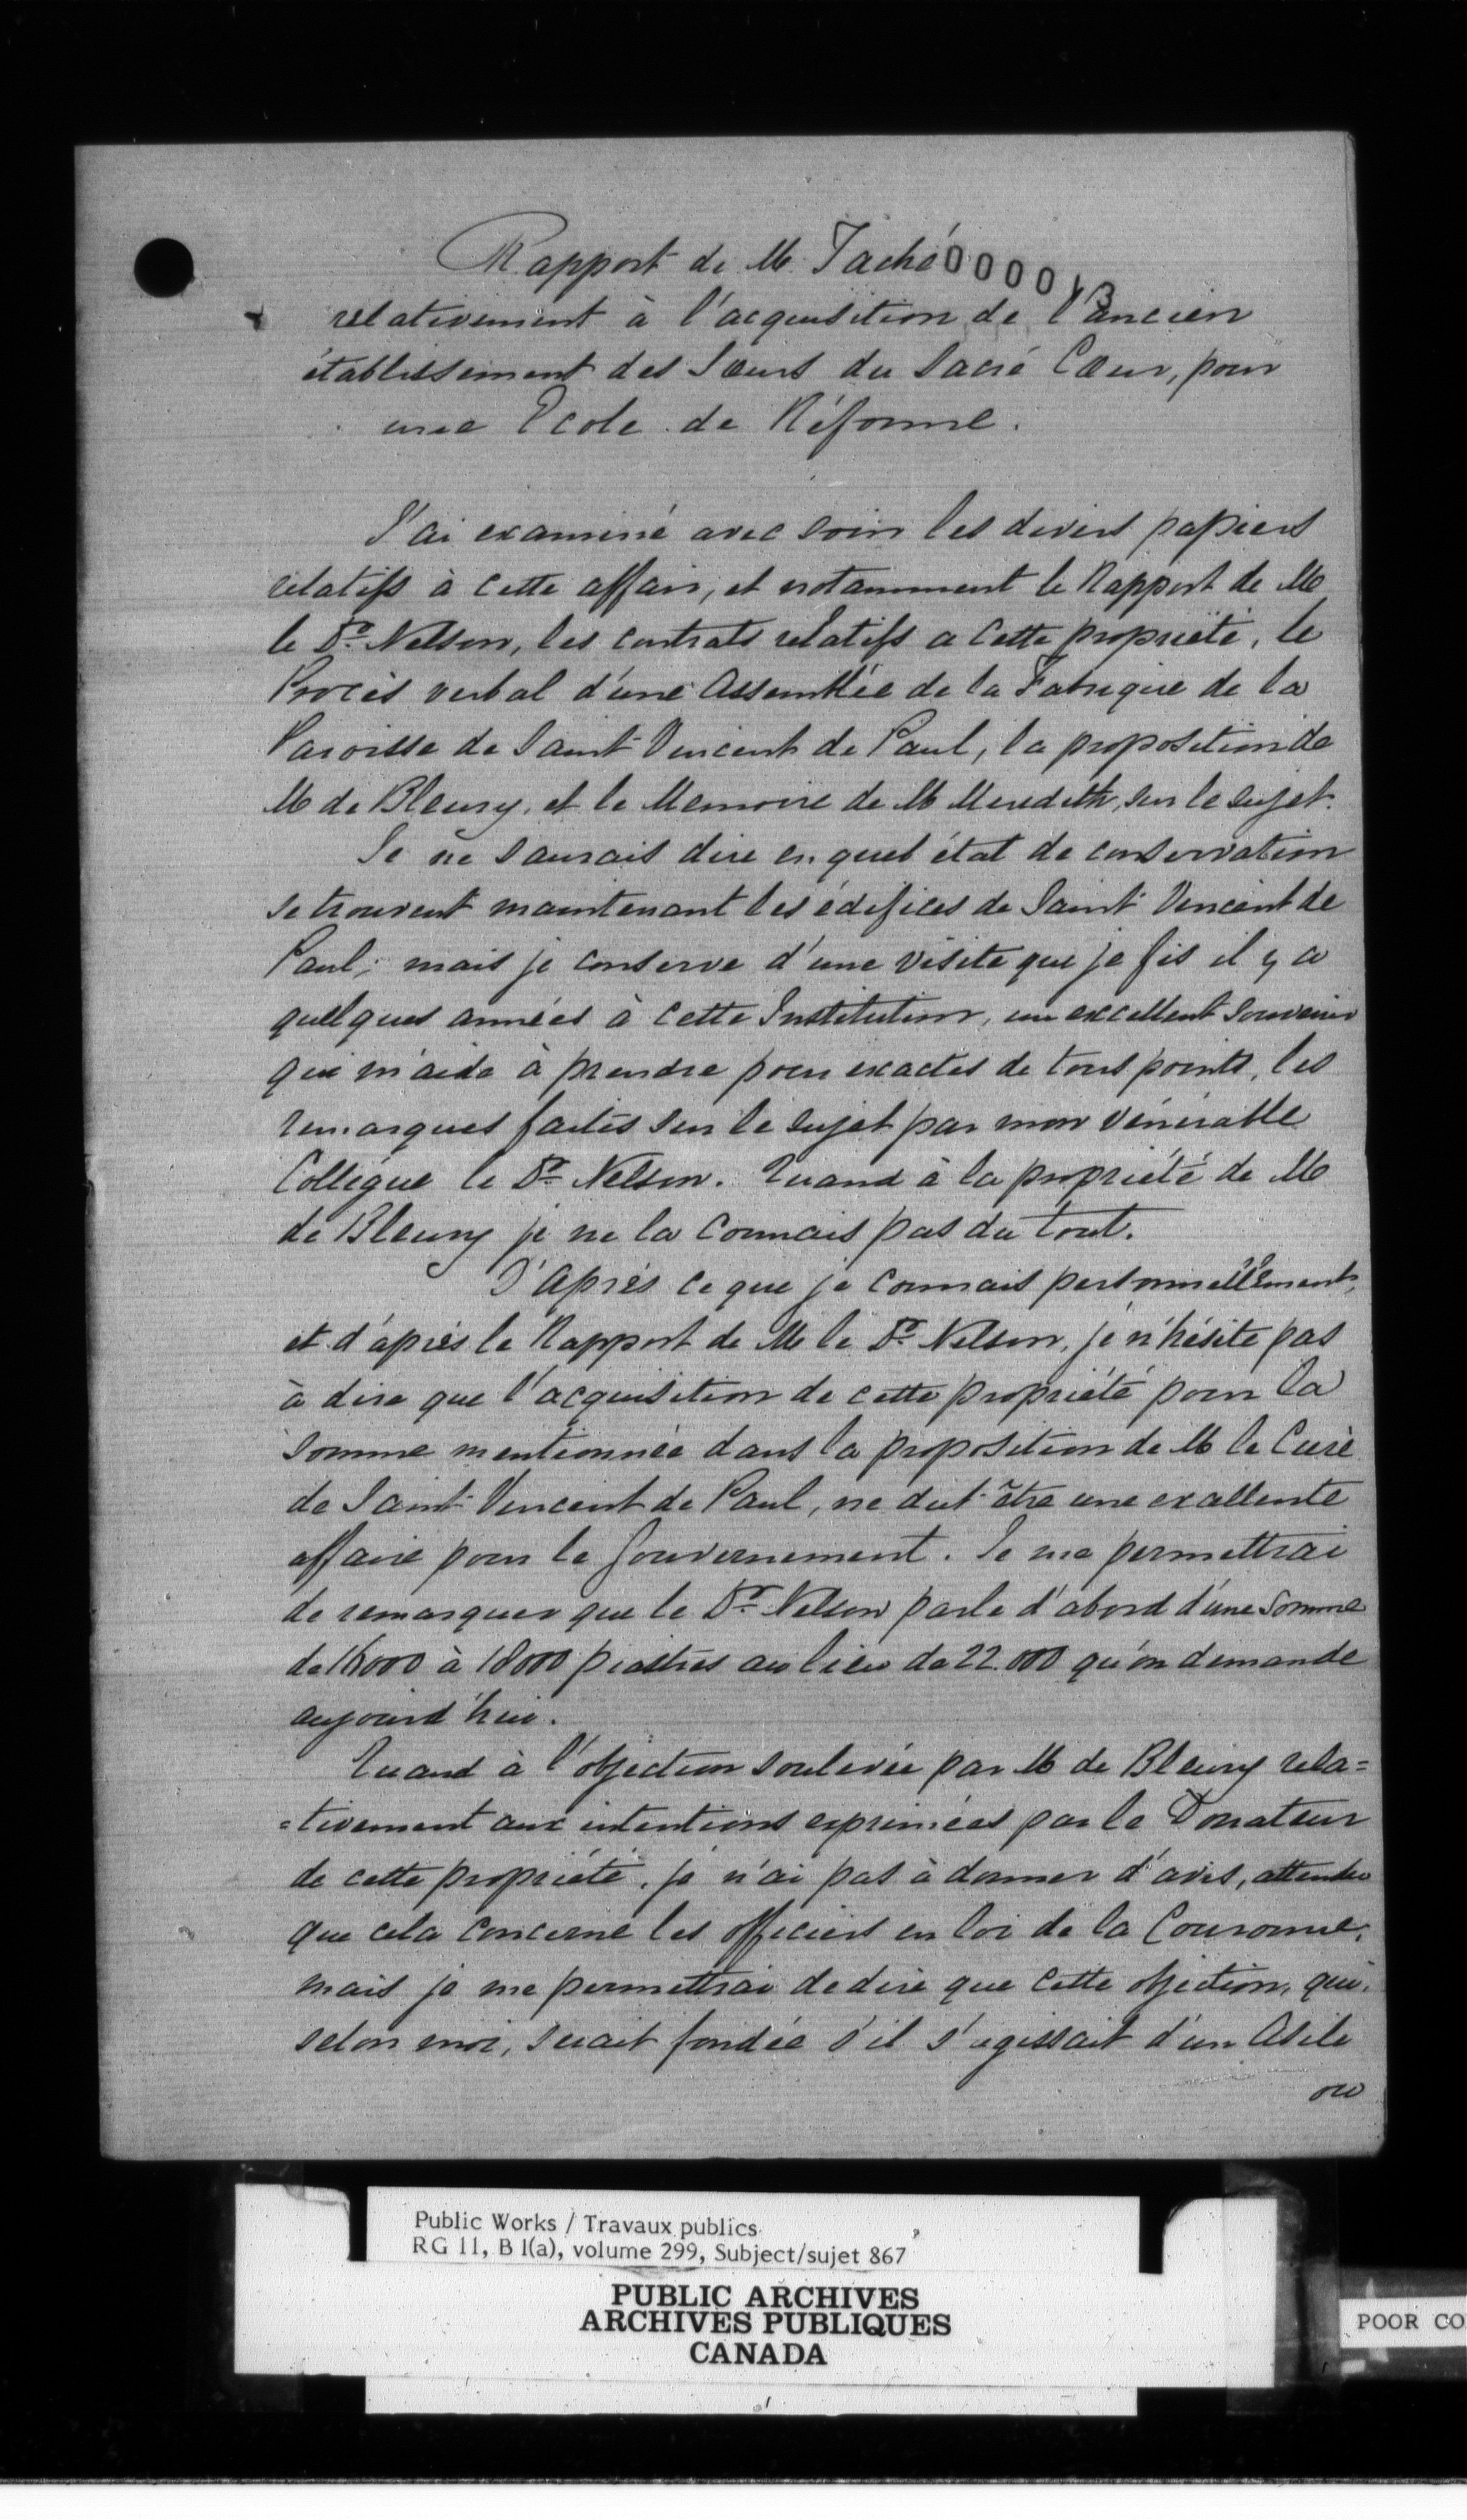 Rapport de M. Taché 000013
relativement à l'acquisition de l'ancien
établissement des Sœurs du Sacré Cœur, pour
une Ecole de Réforme.
J'ai examiné avec soin les divers papiers
relatifs à cette affair, et notamment le Rapport de M
le Dr. Nelson, les contrats relatifs a cette propriété, le
Procès verbal d'une Assemblée de la Fabrique de la
Paroisse de Saint Vincent de Paul, la proposition de
M de Bleury, et le Memoire de M Meredith, sur le sujet.
Je ne saurais dire en quel état de conservation
se trouvent maintenant les édifices de Saint Vincent de
Paul; mais je conserve d'une visite que je fis il y a
quelques années à cette Institution, un excellent souvenir
qui m'aide à prendre pour exactes de tous points, les
remarques faites sur le sujet par mon vénérable
Collègue le Dr. Nelson. Quand à la propriété de M
de Bleury je ne la connais pas du tout.
D'Après ce que je connais personnellement,
et d'après le Rapport de M le Dr. Nelson, je n'hésite pas
à dire que l'acquisition de cette propriété pour la
somme mentionnée dans la proposition de M le Curé
de Saint Vincent de Paul, ne dut être une excellente
affaire pour le Gouvernement. Je me permettrai
de remarquer que le Dr. Nelson parle d'abord d'une somme
de 16000 à 18000 piastres au lieu de 22.000 qu'on demande
aujourd'hui.
Quand à l'objection soulevée par M de Bleury rela=
=tivement aux intentions exprimées par le Donateur
de cette propriété, je n'ai pas à donner d'avis, attendu
que cela concerne les officiers en loi de la Couronne,
mais je me permettrai de dire que cette objection, qui,
selon moi, serait fondée s'il s'agissait d'un Asile
ou
Public Works / Travaux publics
RG 11, B 1(a), volume 299, Subject/sujet 867
PUBLIC ARCHIVES
ARCHIVES PUBLIQUES
CANADA
POOR CO